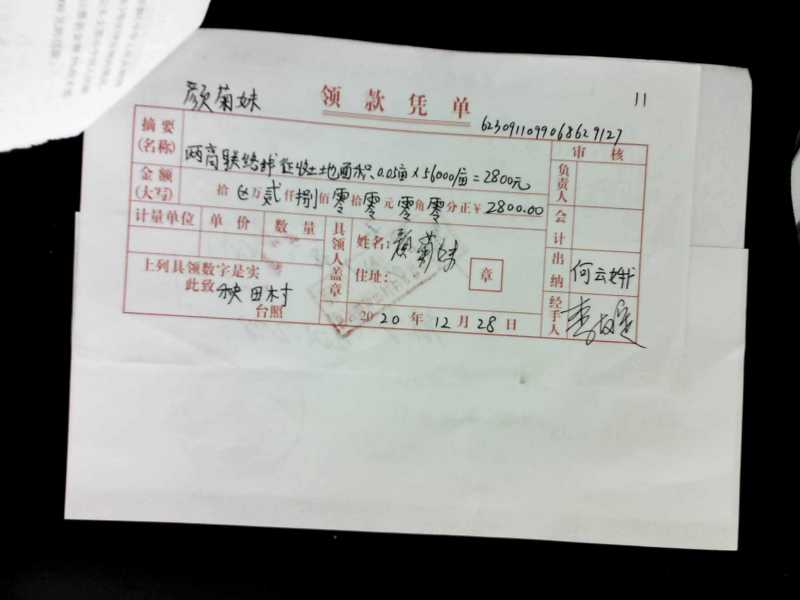 颜菊妹
领款凭单
11
6230911099068629127
摘要(名称)
两高联络线征收土地面积:0.05亩×56000/亩=2800元
审核
负责人
金额(大写)
拾 万贰仟捌佰零拾零元零角零分正¥2800.00
会计
计量单位 单价 数量
具领人盖章
姓名:颜菊妹
住址:
章
出纳
何云
上列具领数字是实
此致 秧田村
台照
2020年12月28日
经手人